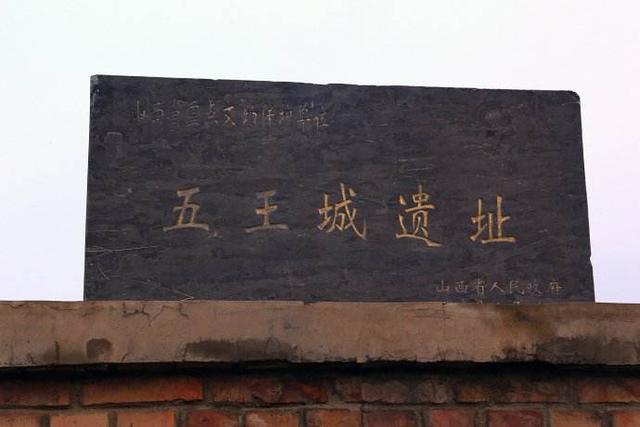 山西省重点文物保护单位
五王城遗址
山西省人民政府